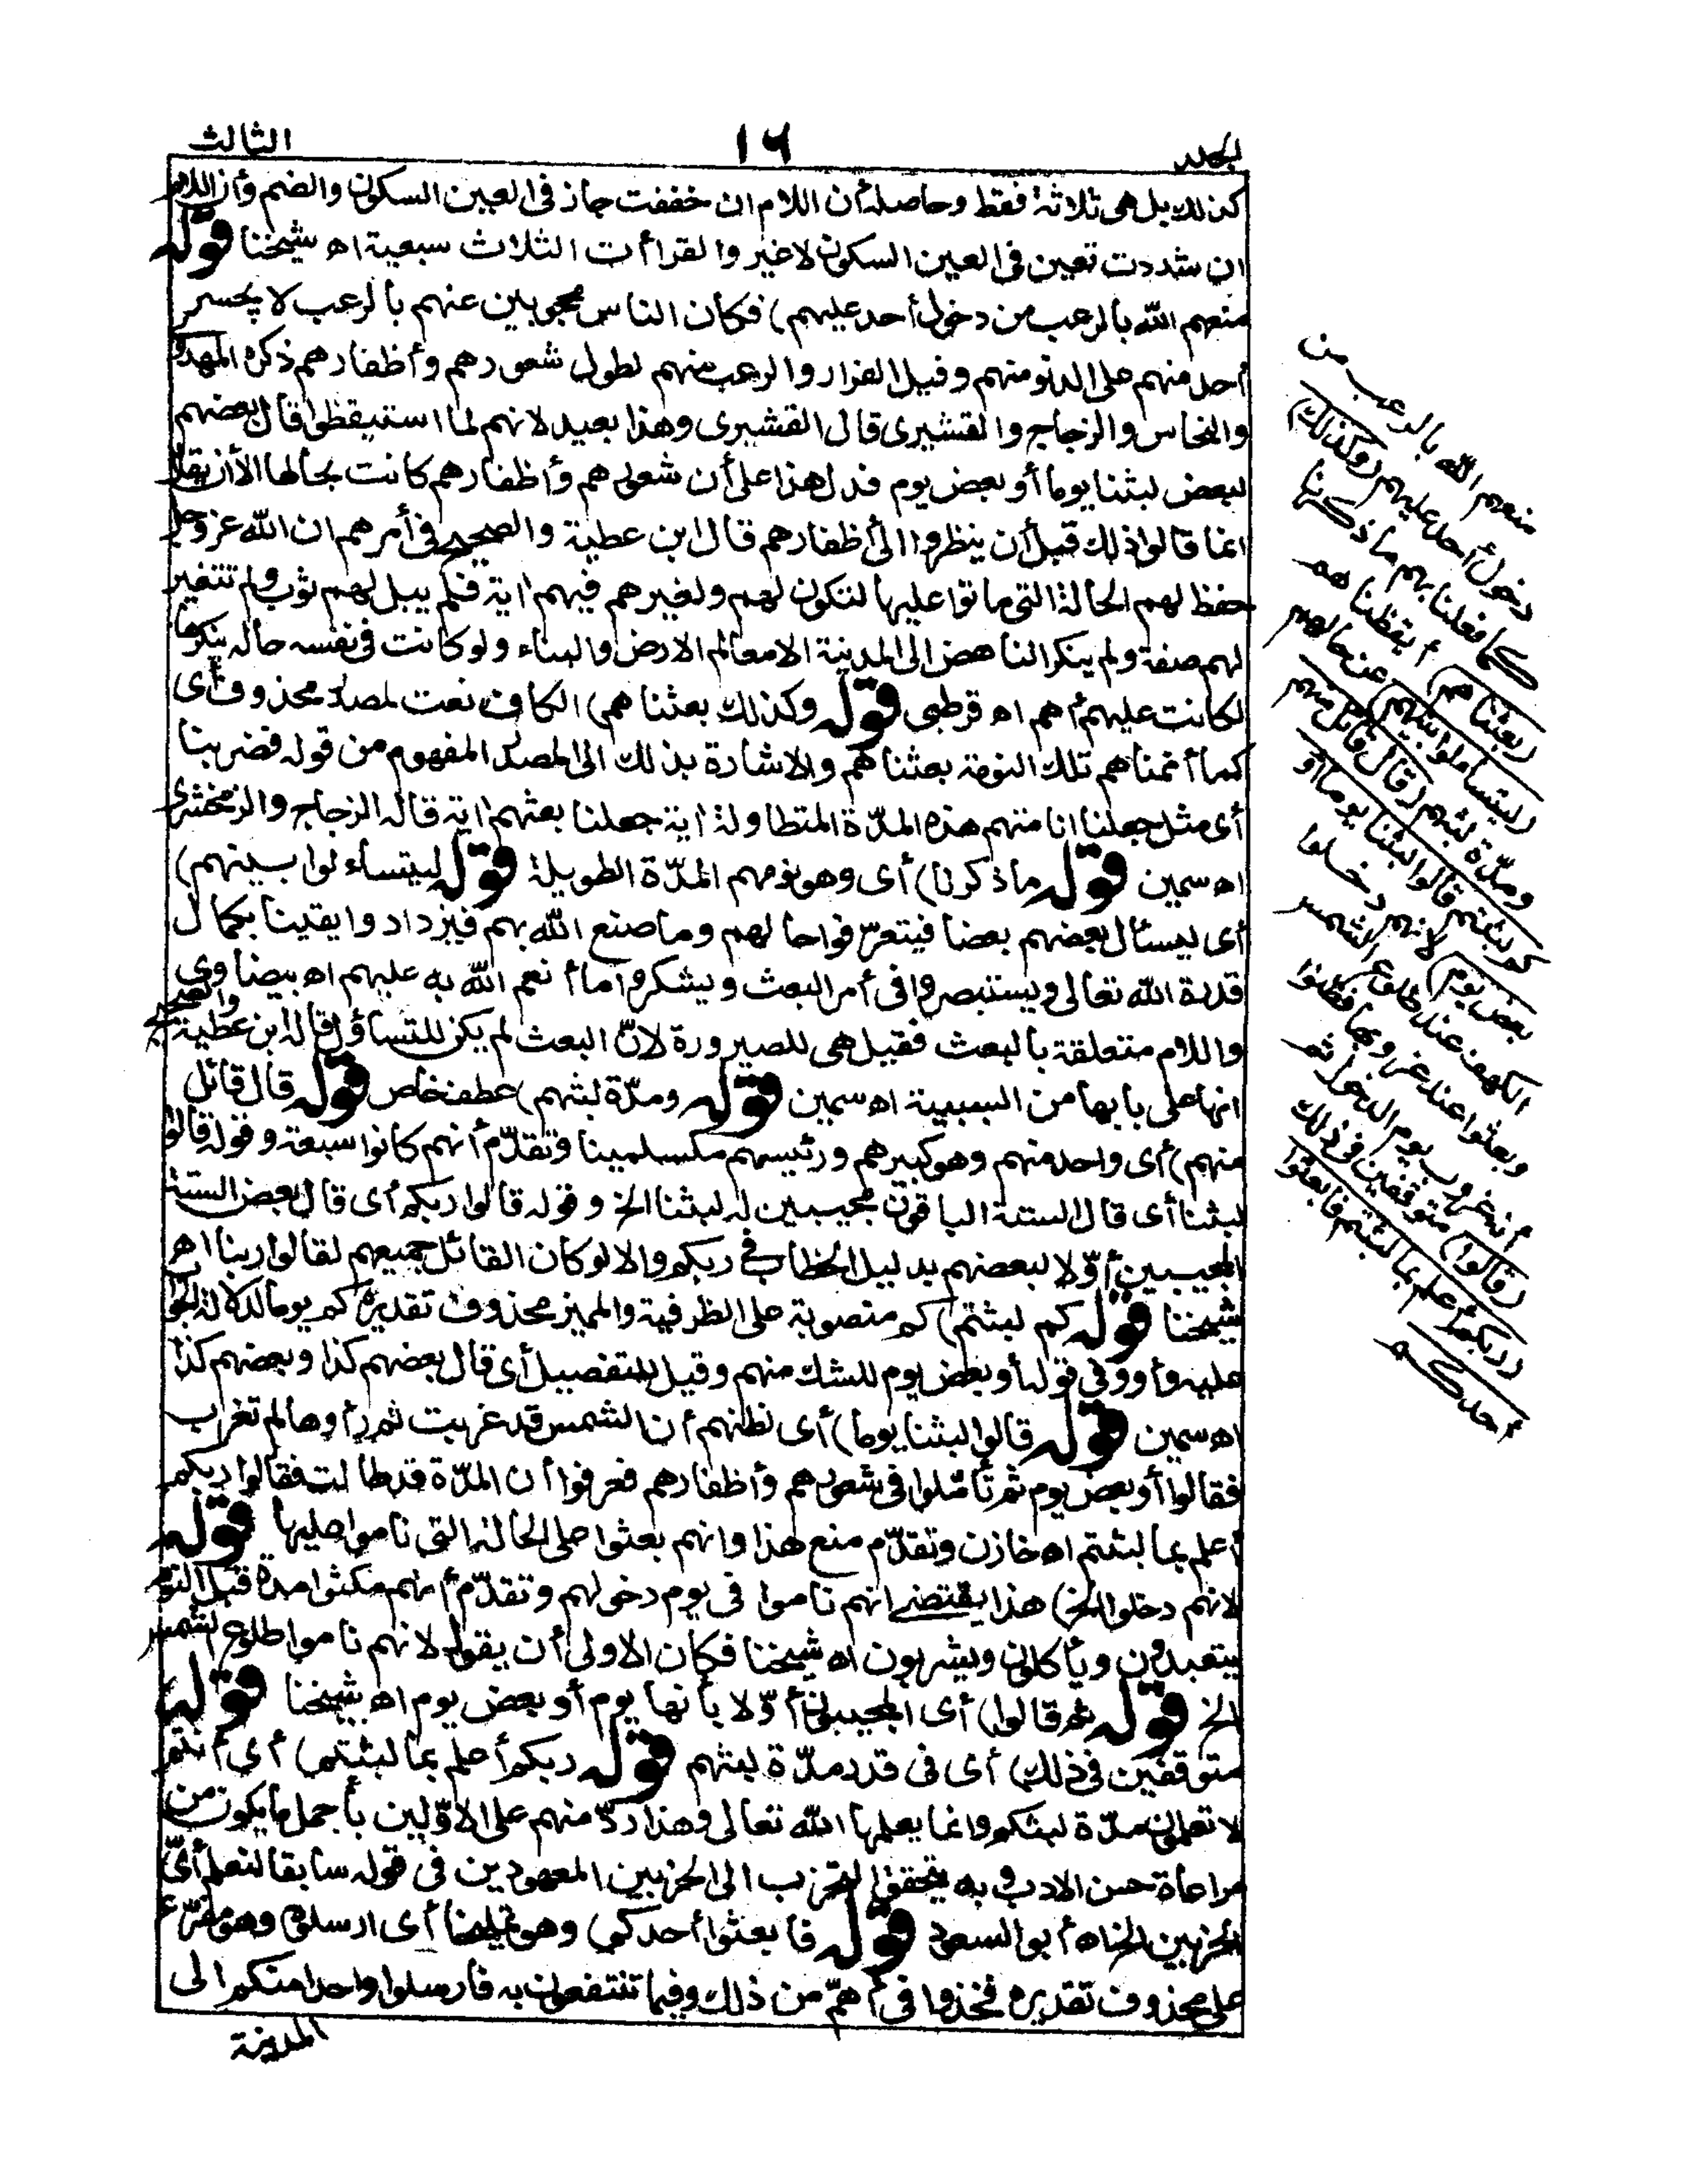 الجلد ١٦ الثالث
كذلك بل هى ثلاثة فقط وحاصله أن اللام ان خففت جاز فى العين السكون والضم وأن اللام
ان شددت تعين فى العين السكون لاغير والقراأت الثلاث سبعية اه شيخنا قوله
منعهم الله بالرعب من دخول أحد عليهم) فكان الناس محجوبين عنهم بالرعب لا يجسر
أحد منهم على الدنو منهم وقيل الفرار والرعب منهم لطول شعورهم وأظفارهم ذكره المهدوى
والنحاس والزجاج والقشيرى قال القشيرى وهذا بعيد لانهم لما استيقظوا قال بعضهم
لبعض لبثنا يوما أو بعض يوم فدل هذا على أن شعورهم وأظفارهم كانت بحالها الا أن يقال
انما قالوا ذلك قبل أن ينظروا الى أظفارهم قال ابن عطية والصحيح فى أمرهم ان الله عز وجل
حفظ لهم الحالة التى ماتوا عليها لتكون لهم ولغيرهم فيهم اية فلم يبل لهم ثوب ولم تتغير
لهم صفة ولم ينكر الناهض الى المدينة الا معالم الارض والبناء ولو كانت فى نفسه حالة ينكرها
لكانت عليهم أهم اه قرطبى قوله وكذلك بعثناهم) الكاف نعت لمصدر محذوف أى
كما أنمناهم تلك النومة بعثناهم والاشارة بذلك الى المصدر المفهوم من قوله فضربنا
أى مثل جعلنا انامتهم هذه المدّة المتطاولة اية جعلنا بعثهم اية قاله الزجاج والزمخشرى
اه سمين قوله ماذكرنا) أى وهو نومهم المدّة الطويلة قوله ليتساءلوا بينهم)
أى ليسئال بعضهم بعضا فيتعرّفوا حالهم وما صنع الله بهم فيزدادوا يقينا بكمال
قدرة الله تعالى ويستبصروا فى أمر البعث ويشكروا ما أنعم الله به عليهم اه بيضاوى
واللام متعلقة بالبعث فقيل هى للصيرورة لانّ البعث لم يكن للتساؤل قاله ابن عطية والصحيح
انها على بابها من السببية اه سمين قوله ومدّة لبثهم) عطف خاص قوله قال قائل
منهم) أى واحد منهم وهو كبيرهم ورئيسهم مكسلمينا وتقدّم أنهم كانوا سبعة وقوله قالوا
لبثنا أى قال الستة الباقون مجيبين له لبثنا الخ وقوله قالوا ربكم أى قال بعض الستة
المجيبين أوّلا لبعضهم بدليل الخطاب فى ربكم والا لو كان القائل جميعهم لقالوا ربنا اه
شيخنا قوله كم لبثتم) كم منصوبة على الظرفية والمميز محذوف تقديره كم يوما لدلالة الجواب
عليه وأو فى قوله أو بعض يوم للشك منهم وقيل للتفصيل أى قال بعضهم كذا وبعضهم كذا
اه سمين قوله قالوا لبثنا يوما) أى لظنهم أن الشمس قد غربت ثم رأوها لم تغرب
فقالوا أو بعض يوم ثم تأمّلوا فى شعورهم وأظفارهم فعرفوا أن المدّة قد طالت فقالوا ربكم
أعلم بما لبثتم اه خازن وتقدّم منع هذا وانهم بعثوا على الحالة التى ناموا عليها قوله
لانهم دخلوا الخ) هذا يقتضى انهم ناموا فى يوم دخولهم وتقدّم أنهم مكثوا مدة قبل النوم
يتعبدون ويأكلون ويشربون اه شيخنا فكان الاولى أن يقول لانهم ناموا طلوع الشمس
الخ قوله ثم قالوا) أى المجيبون أوّلا بأنها يوم أو بعض يوم اه شيخنا قوله
متوقفين فى ذلك) أى فى قدر مدّة لبثهم قوله ربكم أعلم بما لبثتم) أى أنتم
لا تعلمون مدّة لبثكم وانما يعلمها الله تعالى وهذا ردّ منهم على الاوّلين بأجمل ما يكون من
مراعاة حسن الادب وبه يتحقق التحزب الى الحزبين المعهودين فى قوله سابقا لنعلم أىّ
الحزبين الخ اه أبو السعود قوله فابعثوا أحدكم) وهو تمليخا أى ارسلوه وهو مفرّع
على محذوف تقديره فخذوا فى أهمّ من ذلك وفيما تنتفعون به فارسلوا واحدا منكم الى
المدينة
منعهم الله بالرعب من
دخول أحد عليهم (وكذلك)
كما فعلنا بهم ما ذكرنا
(بعثناهم) أيقظناهم
(ليتساءلوا بينهم) عن حالهم
ومدّة لبثهم (قال قائل منهم
كم لبثتم قالوا لبثنا يوما أو
بعض يوم) لانهم دخلوا
الكهف عند طلوع الشمس
وبعثوا عند غروبها فظنوا
أنه غروب يوم الدخول ثم
(قالوا) متوقفين فى ذلك
(ربكم أعلم بما لبثتم فابعثوا
أحدكم